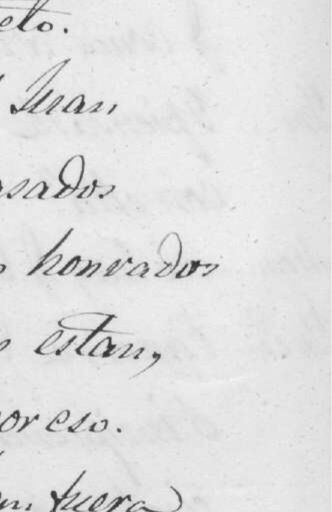 eto.
Juan
asados
honrados
estan,
or eso.
fuera